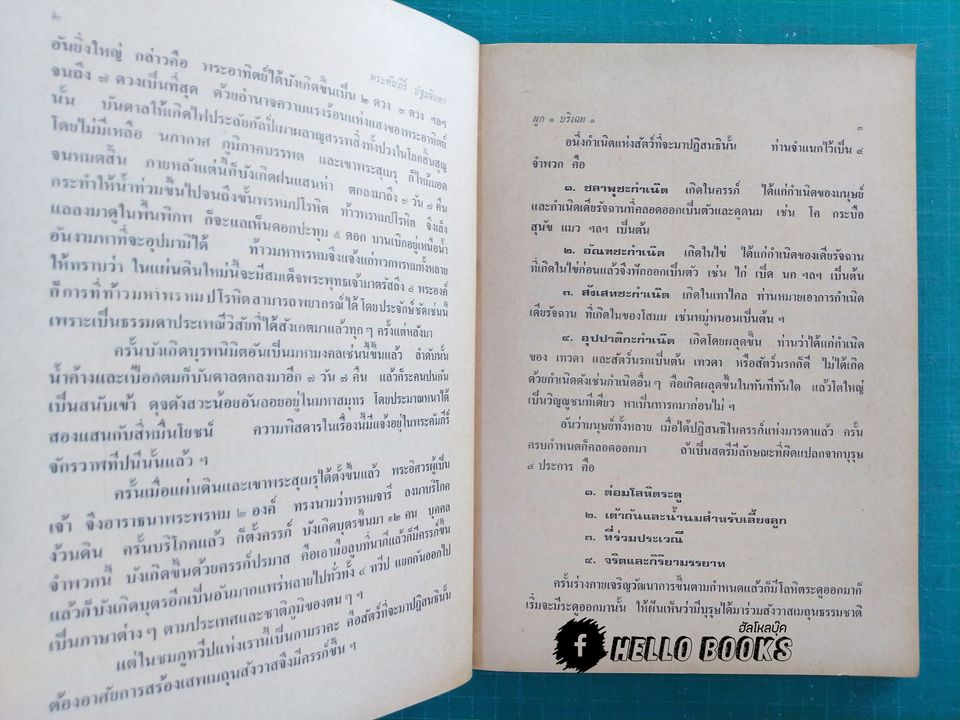 ๒
พระคัมภีร์ ปฐมจินดา
อันยิ่งใหญ่ กล่าวคือ พระอาทิตย์ได้บังเกิดขึ้นเป็น ๒ ดวง ๓ ดวง ฯลฯ
จนถึง ๗ ดวงเป็นที่สุด ด้วยอำนาจความแรงร้อนแห่งแสงของพระอาทิตย์
นั้น บันดาลให้เกิดไฟประลัยกัลป์เผาผลาญสรรพสิ่งทั้งปวงในโลกสิ้นสูญ
โดยไม่มีเหลือ นภากาศ ภูมิภาคบรรพต และเขาพระสุเมรุ ก็ไหม้มอด
จนหมดสิ้น ภายหลังแต่นี้ก็บังเกิดฝนแสนห่า ตกลงมาถึง ๗ วัน ๗ คืน
กระทำให้น้ำท่วมขึ้นไปจนถึงชั้นพรหมปโรหิต ท้าวพรหมปโรหิต จึงเล็ง
แลลงมาดูในพื้นพิภพ ก็จะแลเห็นดอกปะทุม ๕ ดอก บานเบิกอยู่เหนือน้ำ
อันงามหาที่จะอุปมามิได้ ท้าวมหาพรหมจึงแจ้งแก่พวกพรหมทั้งหลาย
ให้ทราบว่า ในแผ่นดินใหม่นี้จะมีสมเด็จพระพุทธเจ้ามาตรัสถึง ๕ พระองค์
ก็การที่ท้าวมหาพรหมปโรหิตสามารถพยากรณ์ได้ โดยประจักษ์ชัดเช่นนี้
เพราะเป็นธรรมดาประเพณีวิสัยที่ได้สังเกตมาแล้วทุก ๆ ครั้งแต่หลังมา
ครั้นบังเกิดบุรพนิมิตอันเป็นมหามงคลเช่นนี้ขึ้นแล้ว ลำดับนั้น
น้ำค้างและเปือกตมก็บันดาลตกลงมาอีก ๗ วัน ๗ คืน แล้วก็ระคนปนกัน
เป็นสนับเข้า ดุจดังสวะน้อยอันลอยอยู่ในมหาสมุทร โดยประมาณหนาได้
สองแสนกับสี่หมื่นโยชน์ ความพิสดารในเรื่องนี้มีแจ้งอยู่ในพระคัมภีร์
จักรวาฬทีปนีนั้นแล้ว ฯ
ครั้นเมื่อแผ่นดินและเขาพระสุเมรุได้ตั้งขึ้นแล้ว พระอิศวรผู้เป็น
เจ้า จึงอาราธนาพระพรหม ๒ องค์ ทรงนามว่าพรหมจารี ลงมาบริโภค
ง้วนดิน ครั้นบริโภคแล้ว ก็ตั้งครรภ์ บังเกิดบุตรขึ้นมา ๑๒ คน บุคคล
จำพวกนี้ บังเกิดขึ้นด้วยครรภ์ปรมาส คือเอามือลูบที่นาภีแล้วก็มีครรภ์ขึ้น
แล้วก็บังเกิดบุตรอีกเป็นอันมากแพร่หลายไปทั่วทั้ง ๔ ทวีป แยกกันออกไป
เป็นภาษาต่าง ๆ ตามประเทศและชาติภูมิของตน ๆ ฯ
แต่ในชมภูทวีปแห่งเรานี้เป็นกามราคะ คือสัตว์ที่จะมาปฏิสนธินั้น
ต้องอาศัยการสร้องเสพเมถุนสังวาสจึงมีครรภ์ขึ้น ฯ
ผูก ๑ บริเฉท ๑
๓
อนึ่งกำเนิดแห่งสัตว์ที่จะมาปฏิสนธินั้น ท่านจำแนกไว้เป็น ๔
จำพวก คือ
๑. ชลาพุชะกำเนิด เกิดในครรภ์ ได้แก่กำเนิดของมนุษย์
และกำเนิดเดียรัจฉานที่คลอดออกเป็นตัวและดูดนม เช่น โค กระบือ
สุนัข แมว ฯลฯ เป็นต้น
๒. อัณฑะชะกำเนิด เกิดในไข่ ได้แก่กำเนิดของเดียรัจฉาน
ที่เกิดในไข่ก่อนแล้วจึงฟักออกเป็นตัว เช่น ไก่ เป็ด นก ฯลฯ เป็นต้น
๓. สังเสทชะกำเนิด เกิดในเหงื่อไคล ท่านหมายเอาการกำเนิด
เดียรัจฉาน ที่เกิดในของโสมม เช่นหมู่หนอนเป็นต้น ฯ
๔. อุปปาติกะกำเนิด เกิดโดยผลุดขึ้น ท่านว่าได้แก่กำเนิด
ของ เทวดา และสัตว์นรกเป็นต้น เทวดา หรือสัตว์นรกก็ดี ไม่ได้เกิด
ด้วยกำเนิดดังเช่นกำเนิดอื่น ๆ คือเกิดผลุดขึ้นในทันทีทันใด แล้วโตใหญ่
เป็นวิญญูชนทีเดียว หาเป็นทารกมาก่อนไม่ ฯ
อันว่ามนุษย์ทั้งหลาย เมื่อได้ปฏิสนธิในครรภ์แห่งมารดาแล้ว ครั้น
ครบกำหนดก็คลอดออกมา ถ้าเป็นสตรีมีลักษณะที่ผิดแปลกจากบุรุษ
๔ ประการ คือ
๑. ต่อมโลหิตระดู
๒. เต้าถันและน้ำนมสำหรับเลี้ยงลูก
๓. ที่ร่วมประเวณี
๔. จริตและกิริยามรรยาท
ครั้นร่างกายเจริญวัฒนาการขึ้นตามกำหนดแล้วก็มีโลหิตระดูออกมาก็
เริ่มจะมีระดูออกมานั้น ให้ฝันเห็นว่ามีบุรุษได้มาร่วมสังวาสเมถุนธรรมชาติ
ฮัลโหลบุ๊ค
f HELLO BOOKS